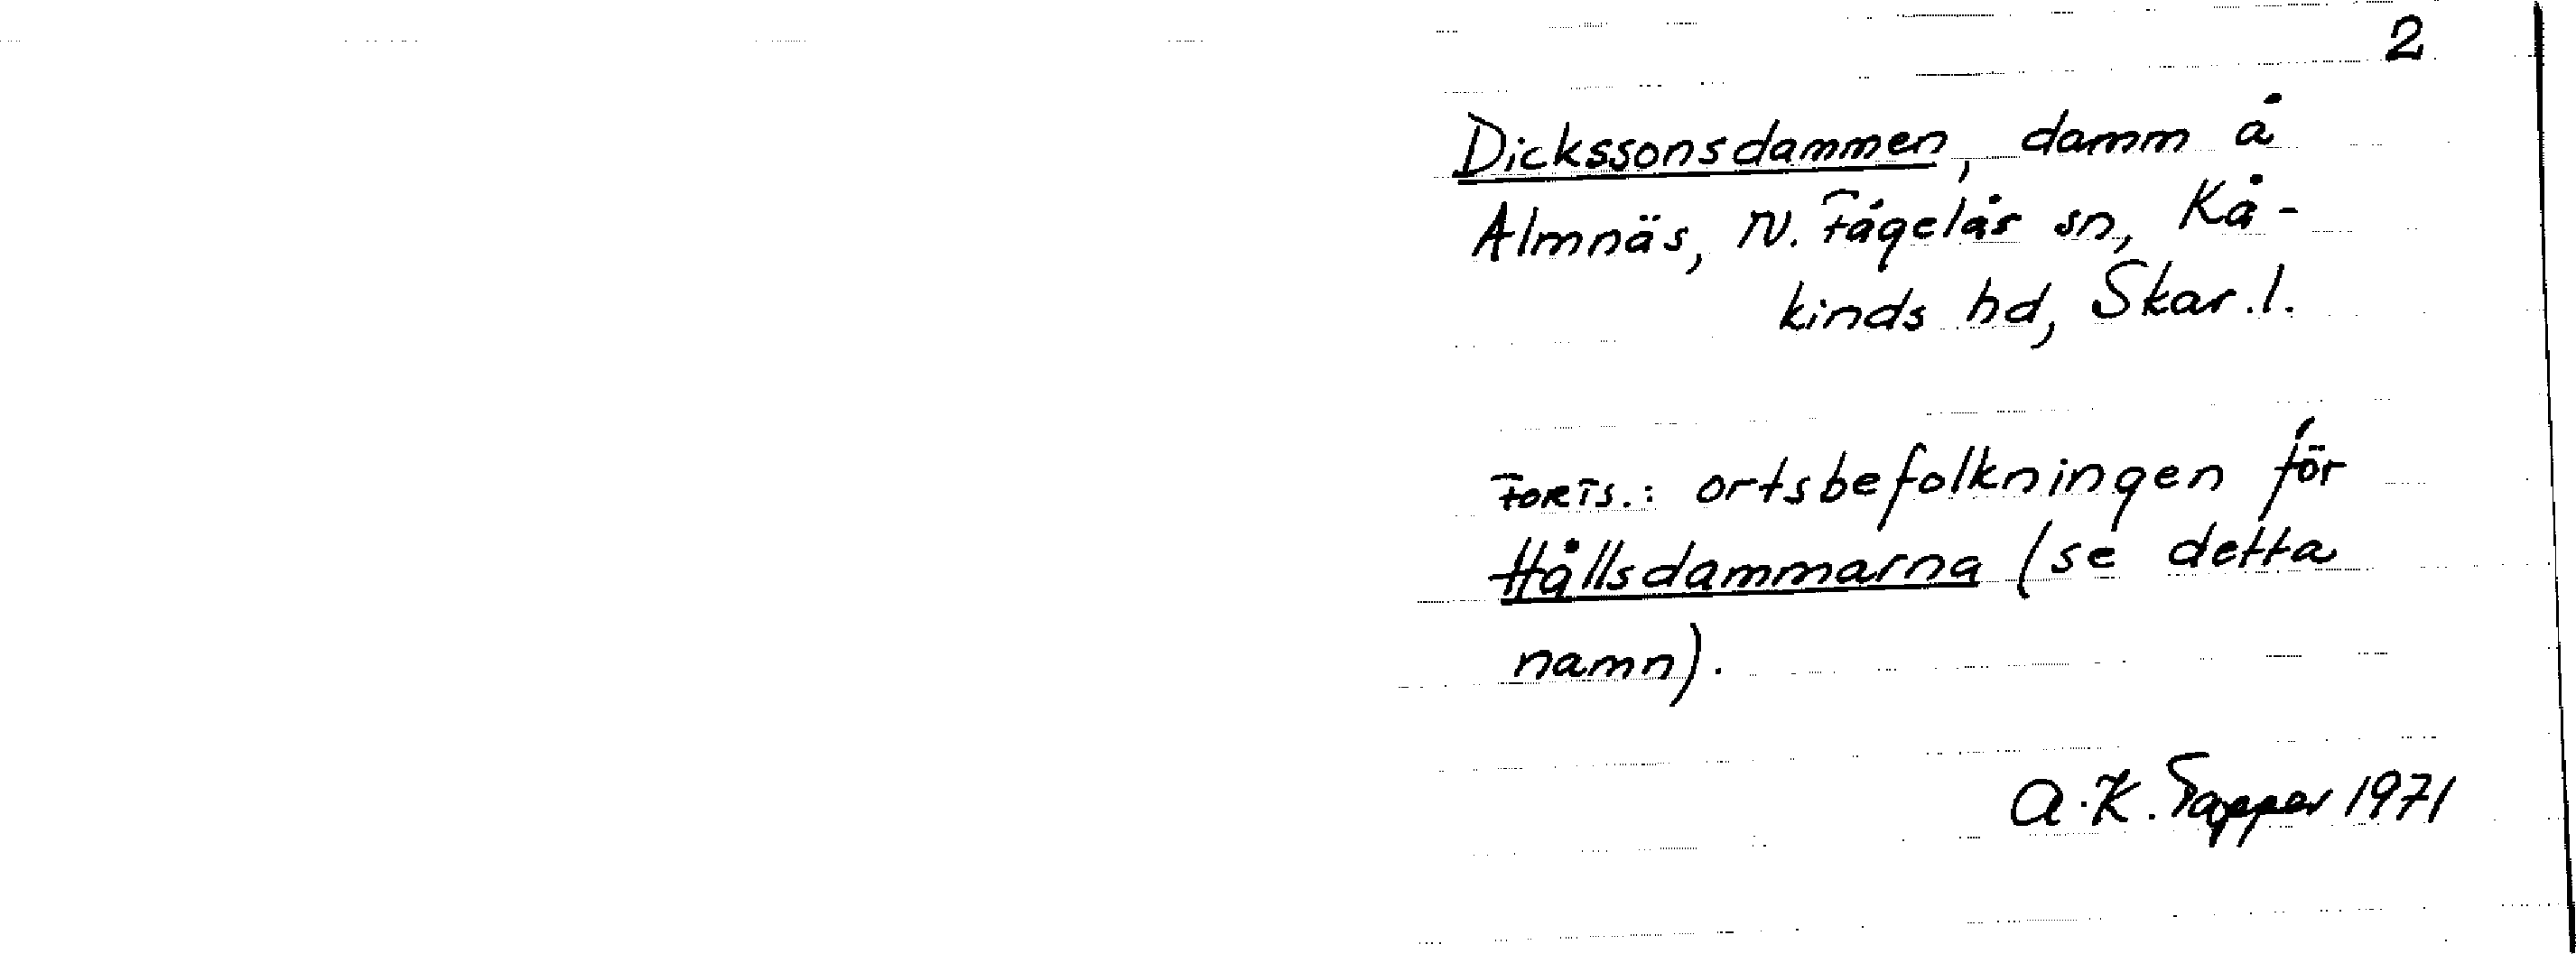 2
Dickssonsdammen, damm å
Almnäs, N. Fågelås sn, Kå-
kinds hd, Skar.l.
FORTS.: ortsbefolkningen för
Hållsdammarna (se detta
namn).
A.K. Tapper 1971